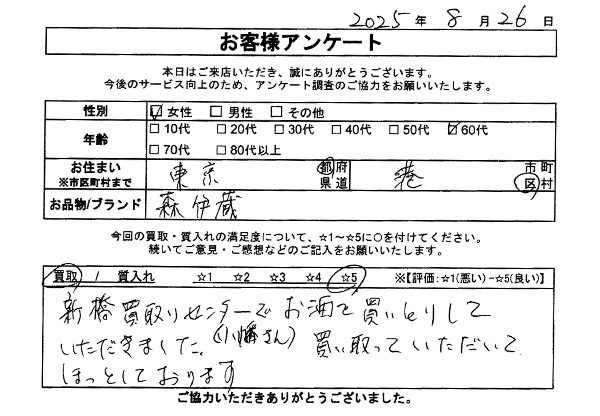 2025年 8月 26日
お客様アンケート
本日はご来店いただき、誠にありがとうございます。
今後のサービス向上のため、アンケート調査のご協力をお願いいたします。
性別 ☑女性 □男性 □その他
年齢 □10代 □20代 □30代 □40代 □50代 ☑60代
□70代 □80代以上
お住まい ※市区町村まで 東京 都府県道 港 市町区村
お品物/ブランド 森伊蔵
今回の買取・質入れの満足度について、☆1～☆5に○を付けてください。
続いてご意見・ご感想などのご記入をお願いします。
買取 / 質入れ ☆1 ☆2 ☆3 ☆4 ☆5 ※【評価:☆1(悪い)-☆5(良い)】
新橋買取りセンターでお酒を買いとりして
いただきました。(小幡さん) 買い取っていただいて
ほっとしております
ご協力いただきありがとうございました。